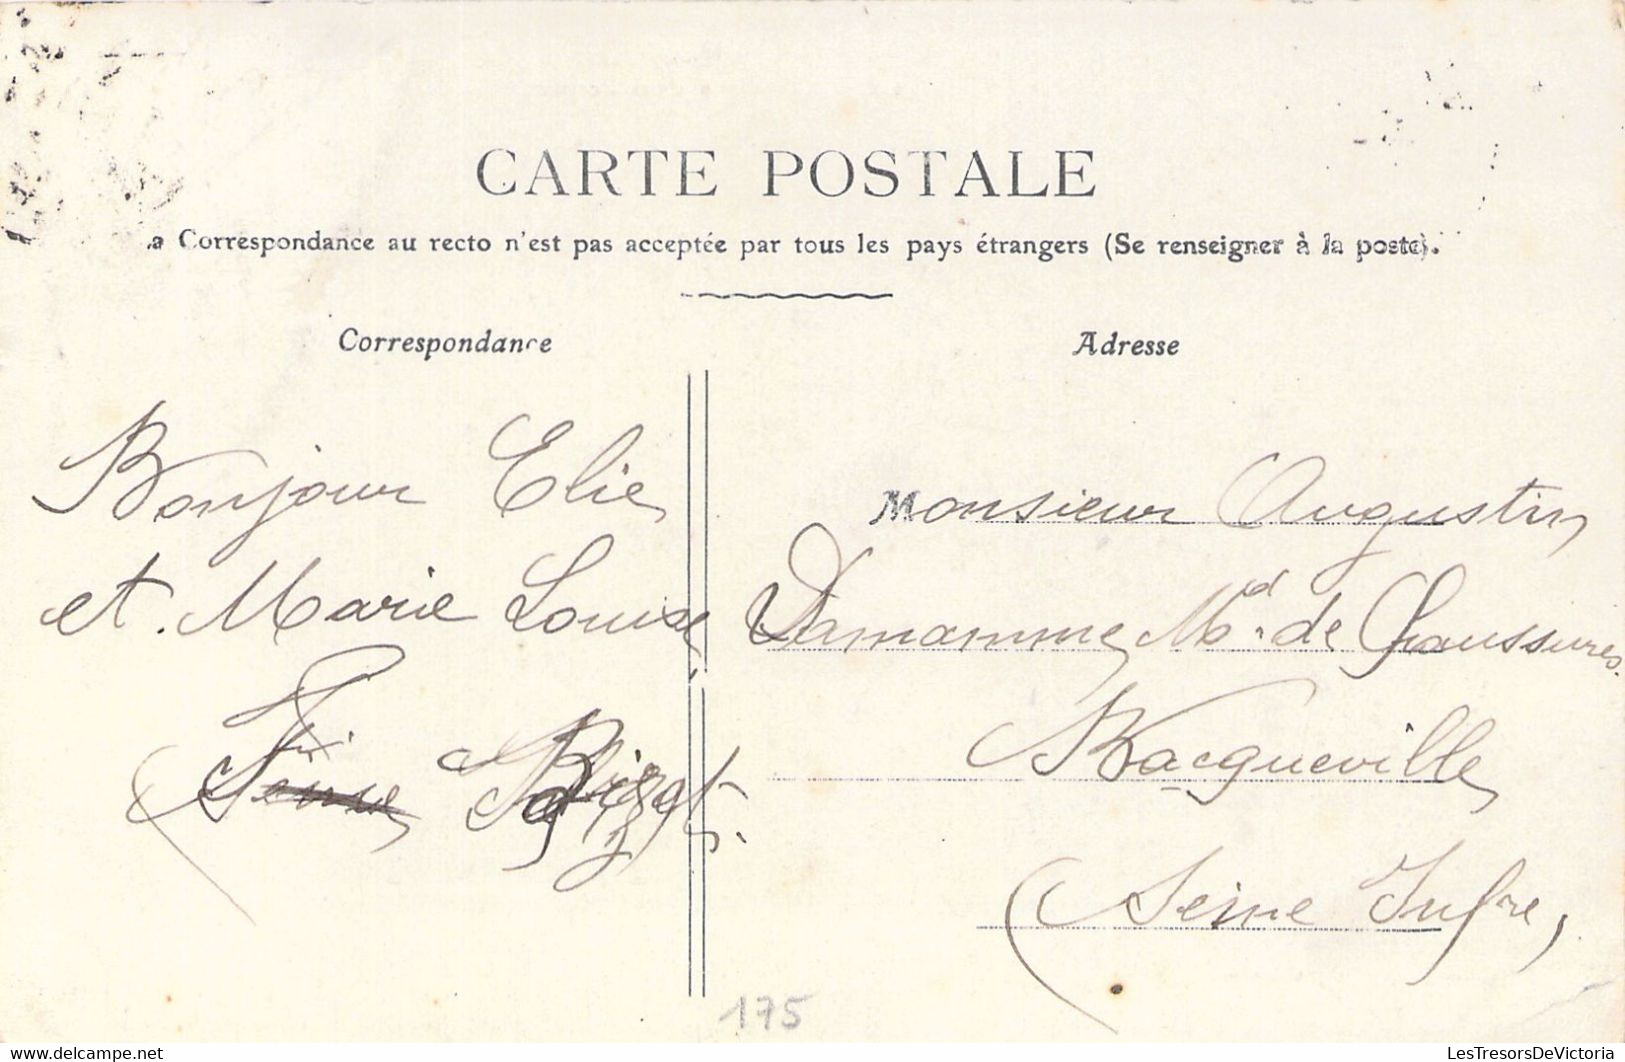 CARTE POSTALE
a Correspondance au recto n'est pas acceptée par tous les pays étrangers (Se renseigner à la poste).
Correspondance
Adresse
Bonjour Elie
et Marie Louise
Bizet
Monsieur Augustin
Damamme Md. de Chaussures
Bacqueville
(Seine Infre)
175
LesTresorsDeVictoria